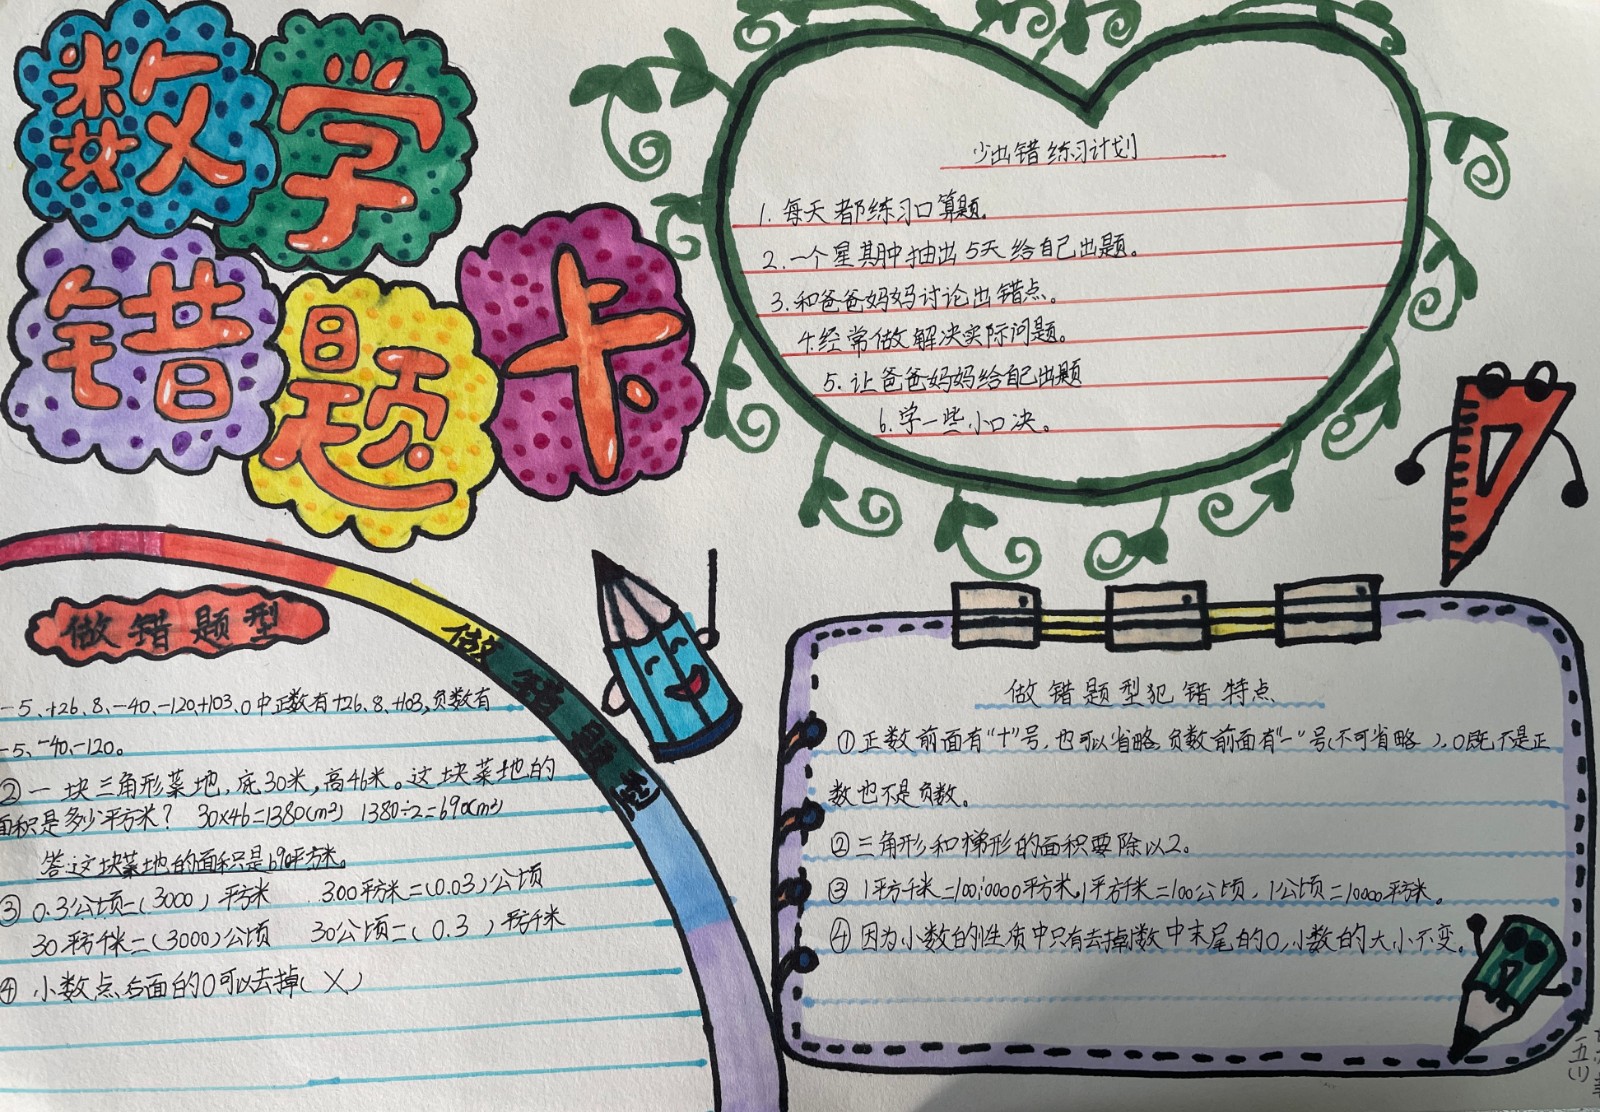 数学
错题卡
少出错练习计划
1. 每天都练习口算题。
2. 一个星期中抽出5天给自己出题。
3. 和爸爸妈妈讨论出错点。
4. 经常做解决实际问题。
5. 让爸爸妈妈给自己出题
6. 学一些小口决。
做错题型
做错题型
-5、+26、8、-40、-120、+103、0中正数有+26、8、+103,负数有
-5、-40、-120。
②一块三角形菜地,底30米,高46米。这块菜地的
面积是多少平方米? 30×46=1380(m²) 1380÷2=690(m²)
答:这块菜地的面积是690平方米。
③ 0.3公顷=(3000)平方米 300平方米=(0.03)公顷
30平方千米=(3000)公顷 30公顷=(0.3)平方千米
④ 小数点后面的0可以去掉(X)
做错题型犯错特点
①正数前面有“+”号,也可以省略,负数前面有“-”号(不可省略),0既不是正
数也不是负数。
②三角形和梯形的面积要除以2。
③ 1平方千米=1000000平方米,1平方千米=100公顷,1公顷=10000平方米。
④因为小数的性质中只有去掉小数中末尾的0,小数的大小不变。
五(1)